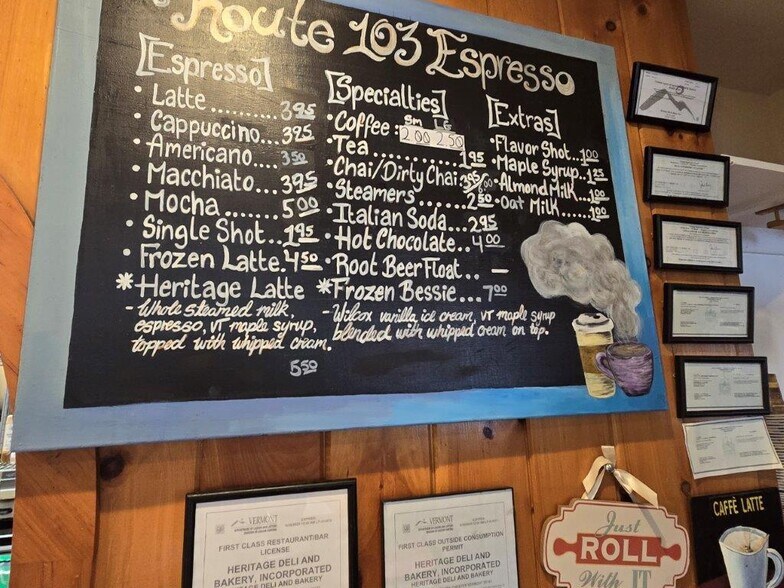 Route 103 Espresso
[Espresso]
• Latte .......... 3 95
• Cappuccino.... 3 95
• Americano ..... 3 50
• Macchiato ... 3 95
• Mocha ........ 5 00
• Single Shot.. 1 95
• Frozen Latte. 4 50
* Heritage Latte
- Whole steamed milk,
espresso, VT maple syrup,
topped with whipped cream.
5 50
[Specialties]
Sm LG
• Coffee : 2 00 2 50
• Tea ............ 1 95
• Chai/Dirty Chai
• Steamers ...... 2 50
• Italian Soda... 2 95
• Hot Chocolate.. 4 00
• Root Beer Float... —
* Frozen Bessie.... 7 00
- Wilcox vanilla, ice cream, VT maple syrup
blended with whipped cream on top.
[Extras]
• Flavor Shot.. 1 00
• Maple Syrup.. 1 25
• Almond Milk.. 1 00
• Oat Milk...... 1 00
VERMONT
FIRST CLASS RESTAURANT/BAR
LICENSE
HERITAGE DELI AND
BAKERY, INCORPORATED
HERITAGE DELI AND BAKERY
VERMONT
FIRST CLASS OUTSIDE CONSUMPTION
PERMIT
HERITAGE DELI AND
BAKERY, INCORPORATED
HERITAGE DELI AND BAKERY
Just
ROLL
With IT
CAFFÈ LATTE